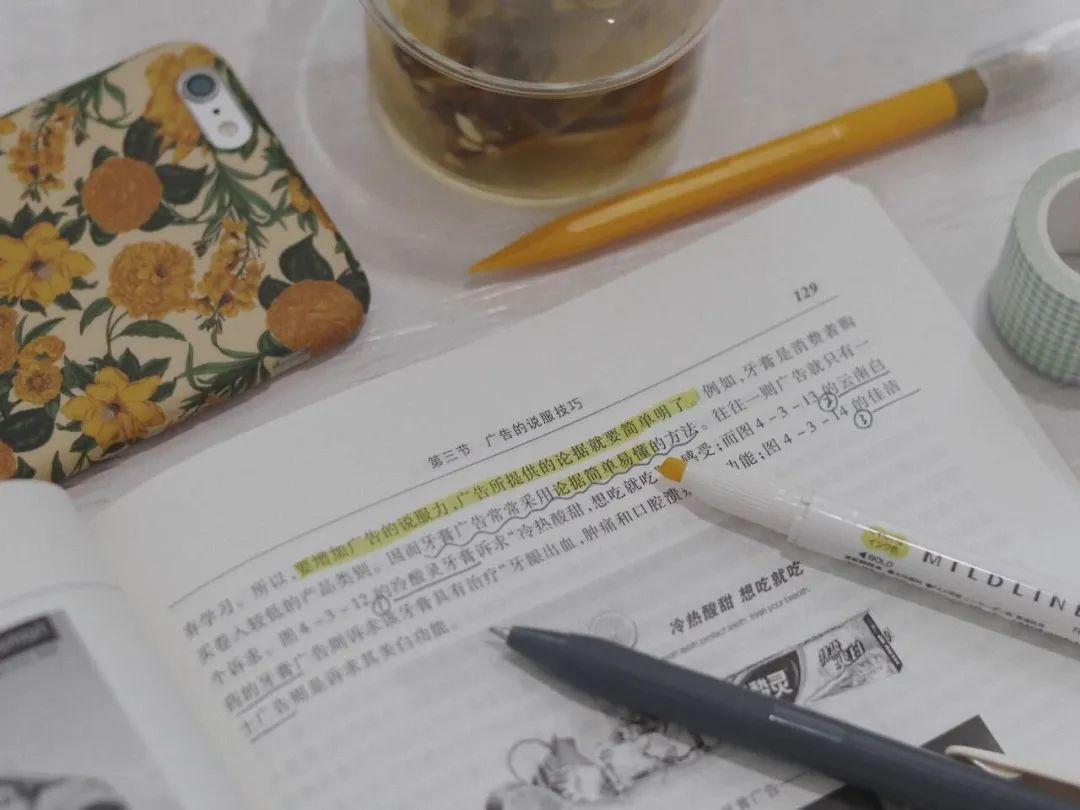 129
第三节 广告的说服技巧
有学习。所以,要增加广告的说服力,广告所提供的论据就要简单明了。例如,牙膏是消费者购
买卷入较低的产品类别。因而牙膏广告常常采用论据简单易懂的方法。往往一则广告就只有一
个诉求。图4-3-12的冷酸灵牙膏诉求“冷热酸甜,想吃就吃 感受;而图4-3-13的云南白
药的牙膏广告则诉求该牙膏具有治疗“牙龈出血,肿痛和口腔溃 功能;图4-3-14的佳洁
士广告则是诉求其美白功能。
①
②
③
冷热酸甜 想吃就吃
protect teeth. fresh your breath.
GOLD
MILDLINE